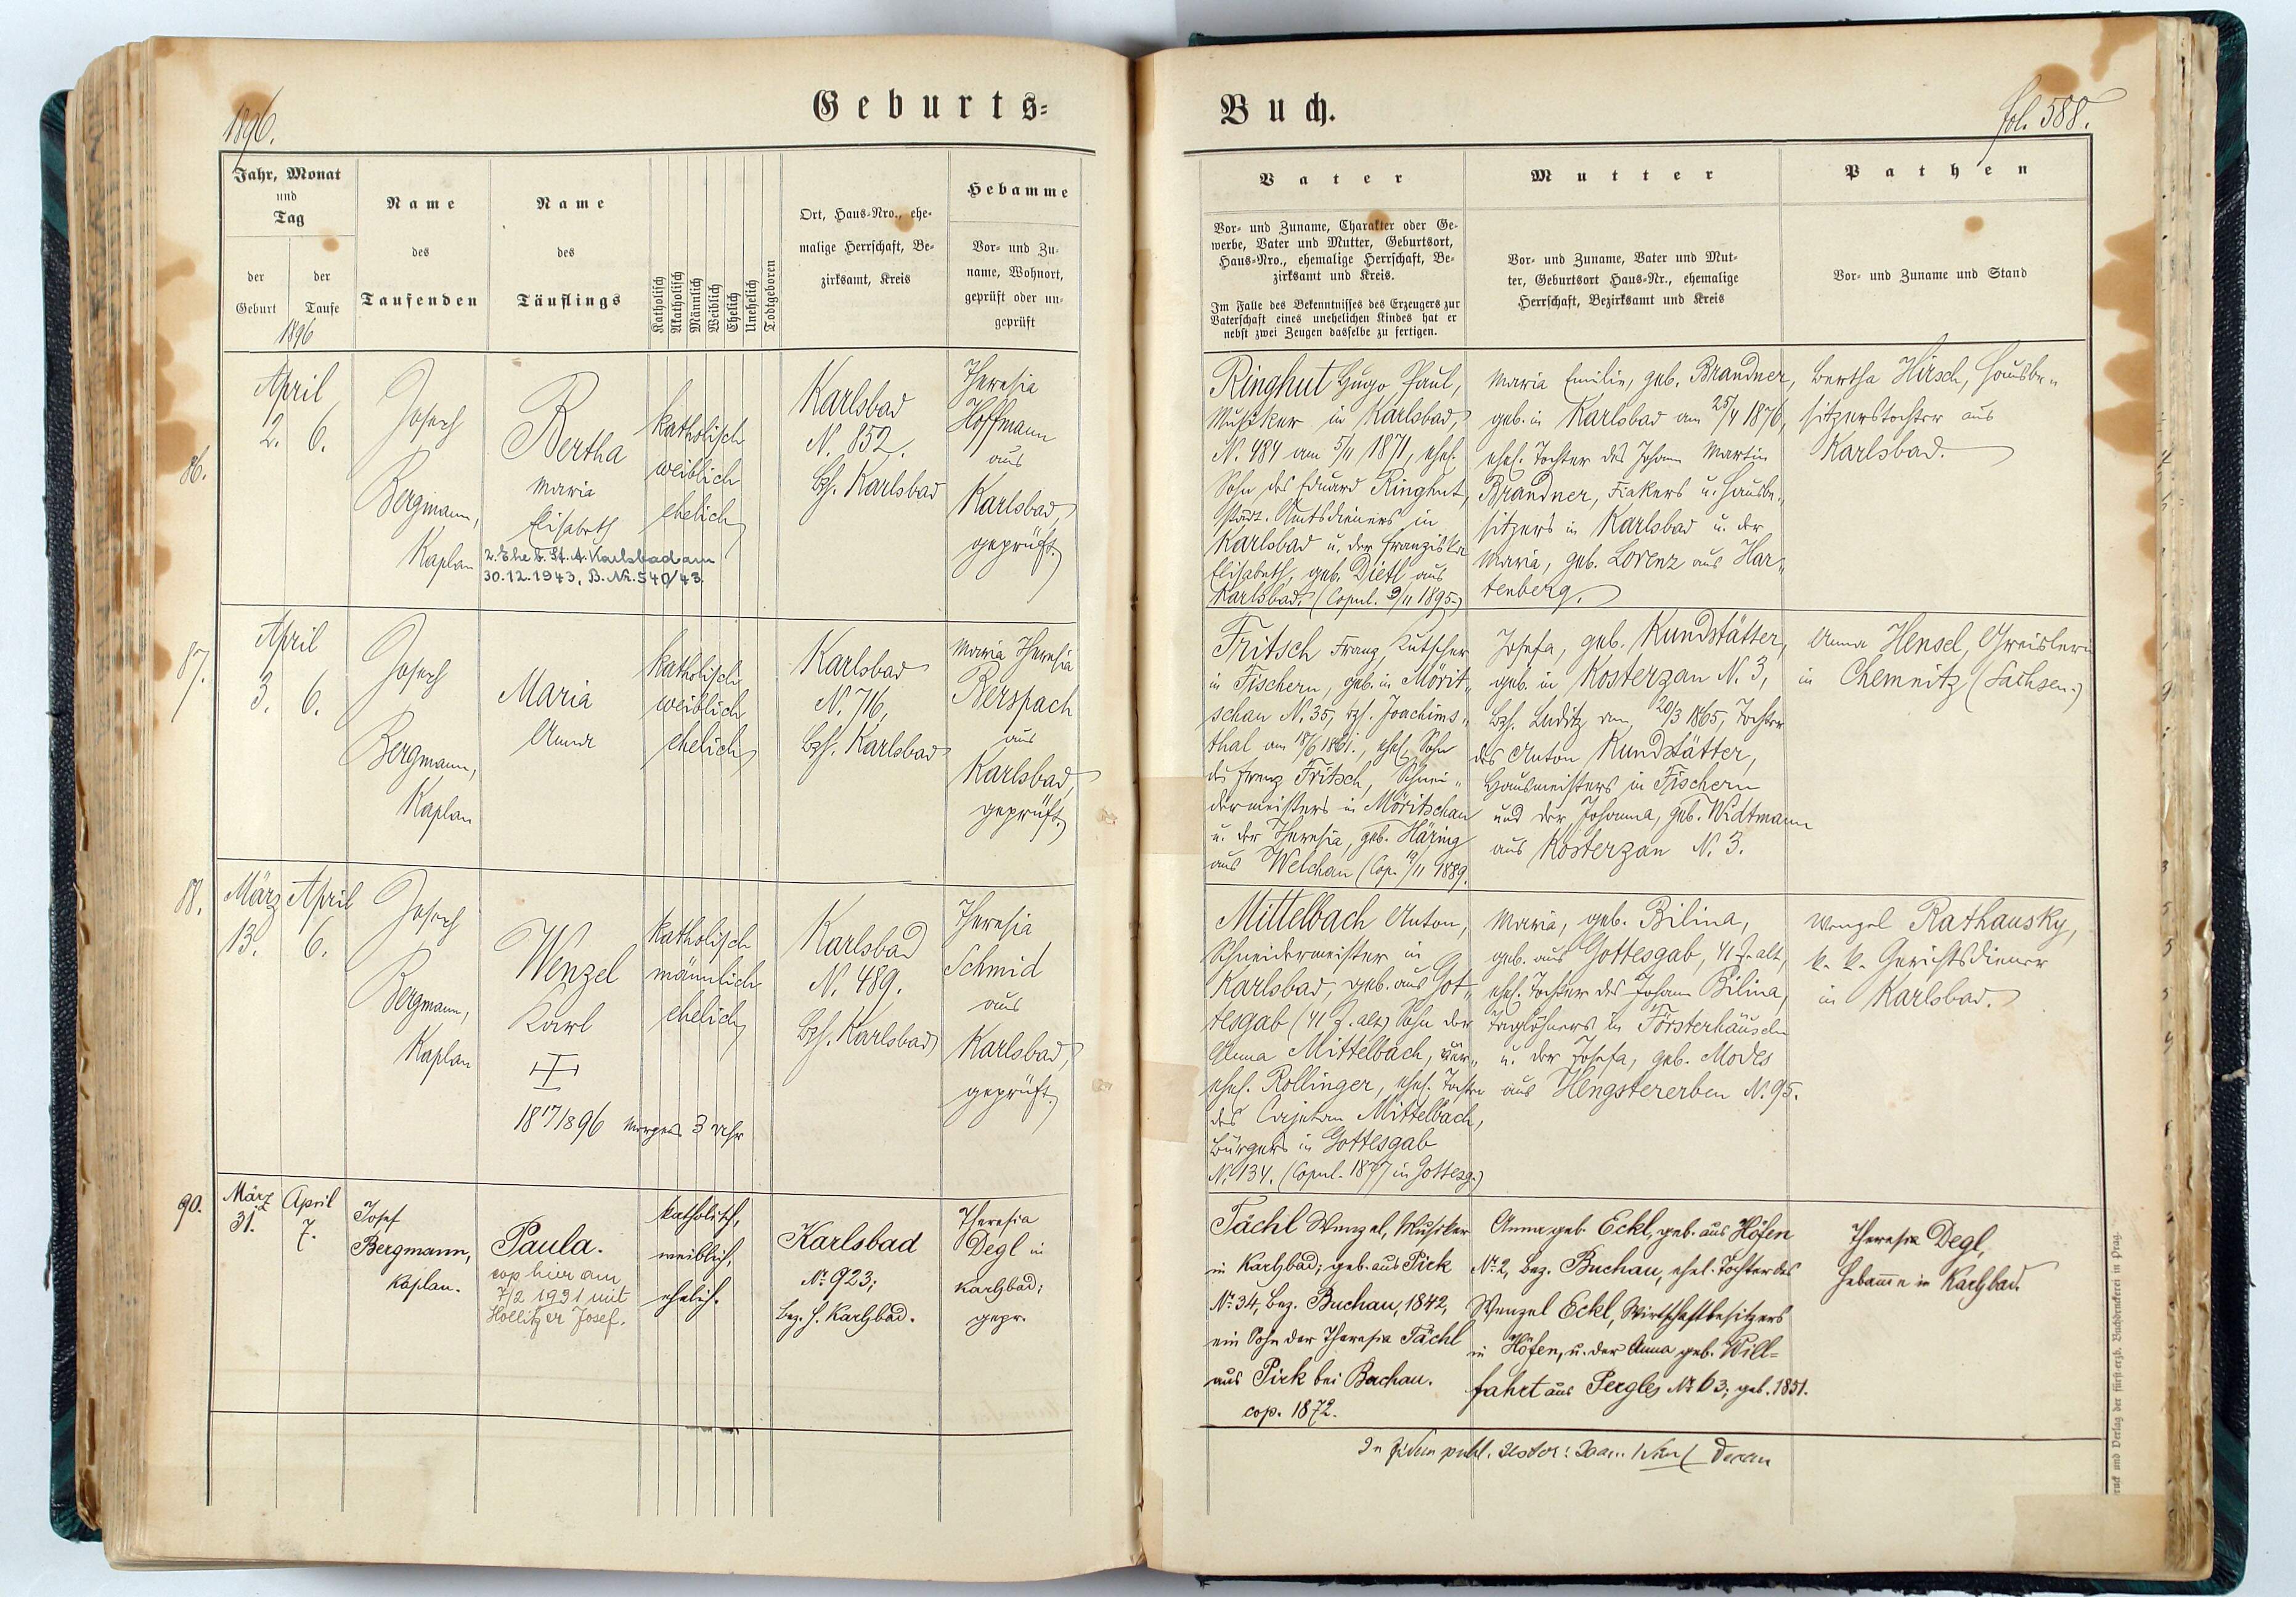 1896.
Geburts=
Buch.
fol. 588.
Jahr, Monat
und
Tag
der
Geburt
der
Taufe
1896
Name
des
Taufenden
Name
des
Täuflings
Katholisch
Akatholisch
Männlich
Weiblich
Ehelich
Unehelich
Todtgeboren
Ort, Haus-Nro., ehe-
malige Herrschaft, Be-
zirksamt, Kreis
Hebamme
Vor- und Zu-
name, Wohnort,
geprüft oder un-
geprüft
Vater
Vor- und Zuname, Charakter oder Ge-
werbe, Vater und Mutter, Geburtsort,
Haus-Nro., ehemalige Herrschaft, Be-
zirksamt und Kreis.
Im Falle des Bekenntnisses des Erzeugers zur
Vaterschaft eines unehelichen Kindes hat er
nebst zwei Zeugen dasselbe zu fertigen.
Mutter
Vor- und Zuname, Vater und Mut-
ter, Geburtsort Haus-Nr., ehemalige
Herrschaft, Bezirksamt und Kreis
Pathen
Vor- und Zuname und Stand
86.
April
2. 6.
Josef
Bergmann,
Kaplan
Bertha
Maria
Elisabeth
2. Ehe b. St. A. Karlsbad am
30.12.1943, B. Nr. 540/43.
katholisch
weiblich
ehelich
Karlsbad
N. 852.
Bzh. Karlsbad
Theresia
Hoffmann
aus
Karlsbad,
geprüft.
Ringhut Hugo Paul,
Musiker in Karlsbad,
N. 484 am 5/11 1871, ehel.
Sohn des Eduard Ringhut,
städt. Amtsdieners in
Karlsbad u. der Franziska
Elisabeth, geb. Dietl aus
Karlsbad. (Copul. 9/11 1895.)
Maria Emilie, geb. Brandner,
geb. in Karlsbad am 25/4 1876,
ehel. Tochter des Johann Martin
Brandner, Fiakers u. Hausbe-
sitzers in Karlsbad u. der
Maria, geb. Lorenz aus Har-
tenberg.
Bertha Hirsch, Hausbe-
sitzerstochter aus
Karlsbad.
87.
April
3. 6.
Josef
Bergmann,
Kaplan
Maria
Anna
katholisch
weiblich
ehelich
Karlsbad
N. 716,
Bzh. Karlsbad
Maria Theresia
Berspach
aus
Karlsbad,
geprüft.
Fritsch Franz, Kutscher
in Fischern, geb. in Mörit-
schau N. 35, Bzh. Joachims-
thal am 18/6 1861., ehel. Sohn
des Franz Fritsch, Schnei-
dermeisters in Möritschau
u. der Theresia, geb. Häring
aus Welchau (Cop. 19/11 1889.
Josefa, geb. Kundstätter,
geb. in Kosterzan N. 3,
Bzh. Luditz am 20/3 1865, Tochter
des Anton Kundstätter,
Hausmeisters in Fischern
und der Johanna, geb. Widtmann
aus Kosterzan N. 3.
Anna Hensel, Greislerin
in Chemnitz (Sachsen.)
88.
März April
13. 6.
Josef
Bergmann,
Kaplan
Wenzel
Karl
katholisch
männlich
ehelich
Karlsbad
N. 489.
Bzh. Karlsbad
Theresia
Schmid
aus
Karlsbad,
geprüft.
morgens 3 Uhr
Mittelbach Anton,
Schneidermeister in
Karlsbad, geb. aus Got-
tesgab (41 J. alt) Sohn der
Anna Mittelbach, ver-
ehel. Rollinger, ehel. Tochter
des Cajetan Mittelbach,
Bürgers in Gottesgab
N. 134. (Copul. 1877 in Gottesg.)
Maria, geb. Bilina,
geb. aus Gottesgab, 41 J. alt,
ehel. Tochter des Johann Bilina,
Taglöhners in Försterhäuseln
u. der Josefa, geb. Modes
aus Hengstererben N. 95.
Wenzel Rathausky,
k. k. Gerichtsdiener
in Karlsbad.
90.
März April
31. 7.
Josef
Bergmann,
Kaplan.
Paula.
cop. hier am
7/2 1931 mit
Hollitzer Josef.
katholisch,
weiblich,
ehelich.
Karlsbad
No. 923;
bez. H. Karlsbad.
Theresia
Degl in
Karlsbad;
gepr.
Tächl Wenzel, Musiker
in Karlsbad; geb. aus Pirk
No. 34, Bez. Buchau, 1842,
ein Sohn der Theresia Tächl
aus Pirk bei Buchau.
cop. 1872.
Anna geb. Eckl, geb. aus Höfen
No. 2, bez. Buchau, ehel. Tochter des
Wenzel Eckl, Wirtschaftbesitzers
in Höfen, u. der Anna geb. Will=
fahrt aus Pergles No. 63; geb. 1851.
Theresia Degl,
Hebamme in Karlsbad.
und Verlag der fürst-erzb. Buchdruckerei in Prag.